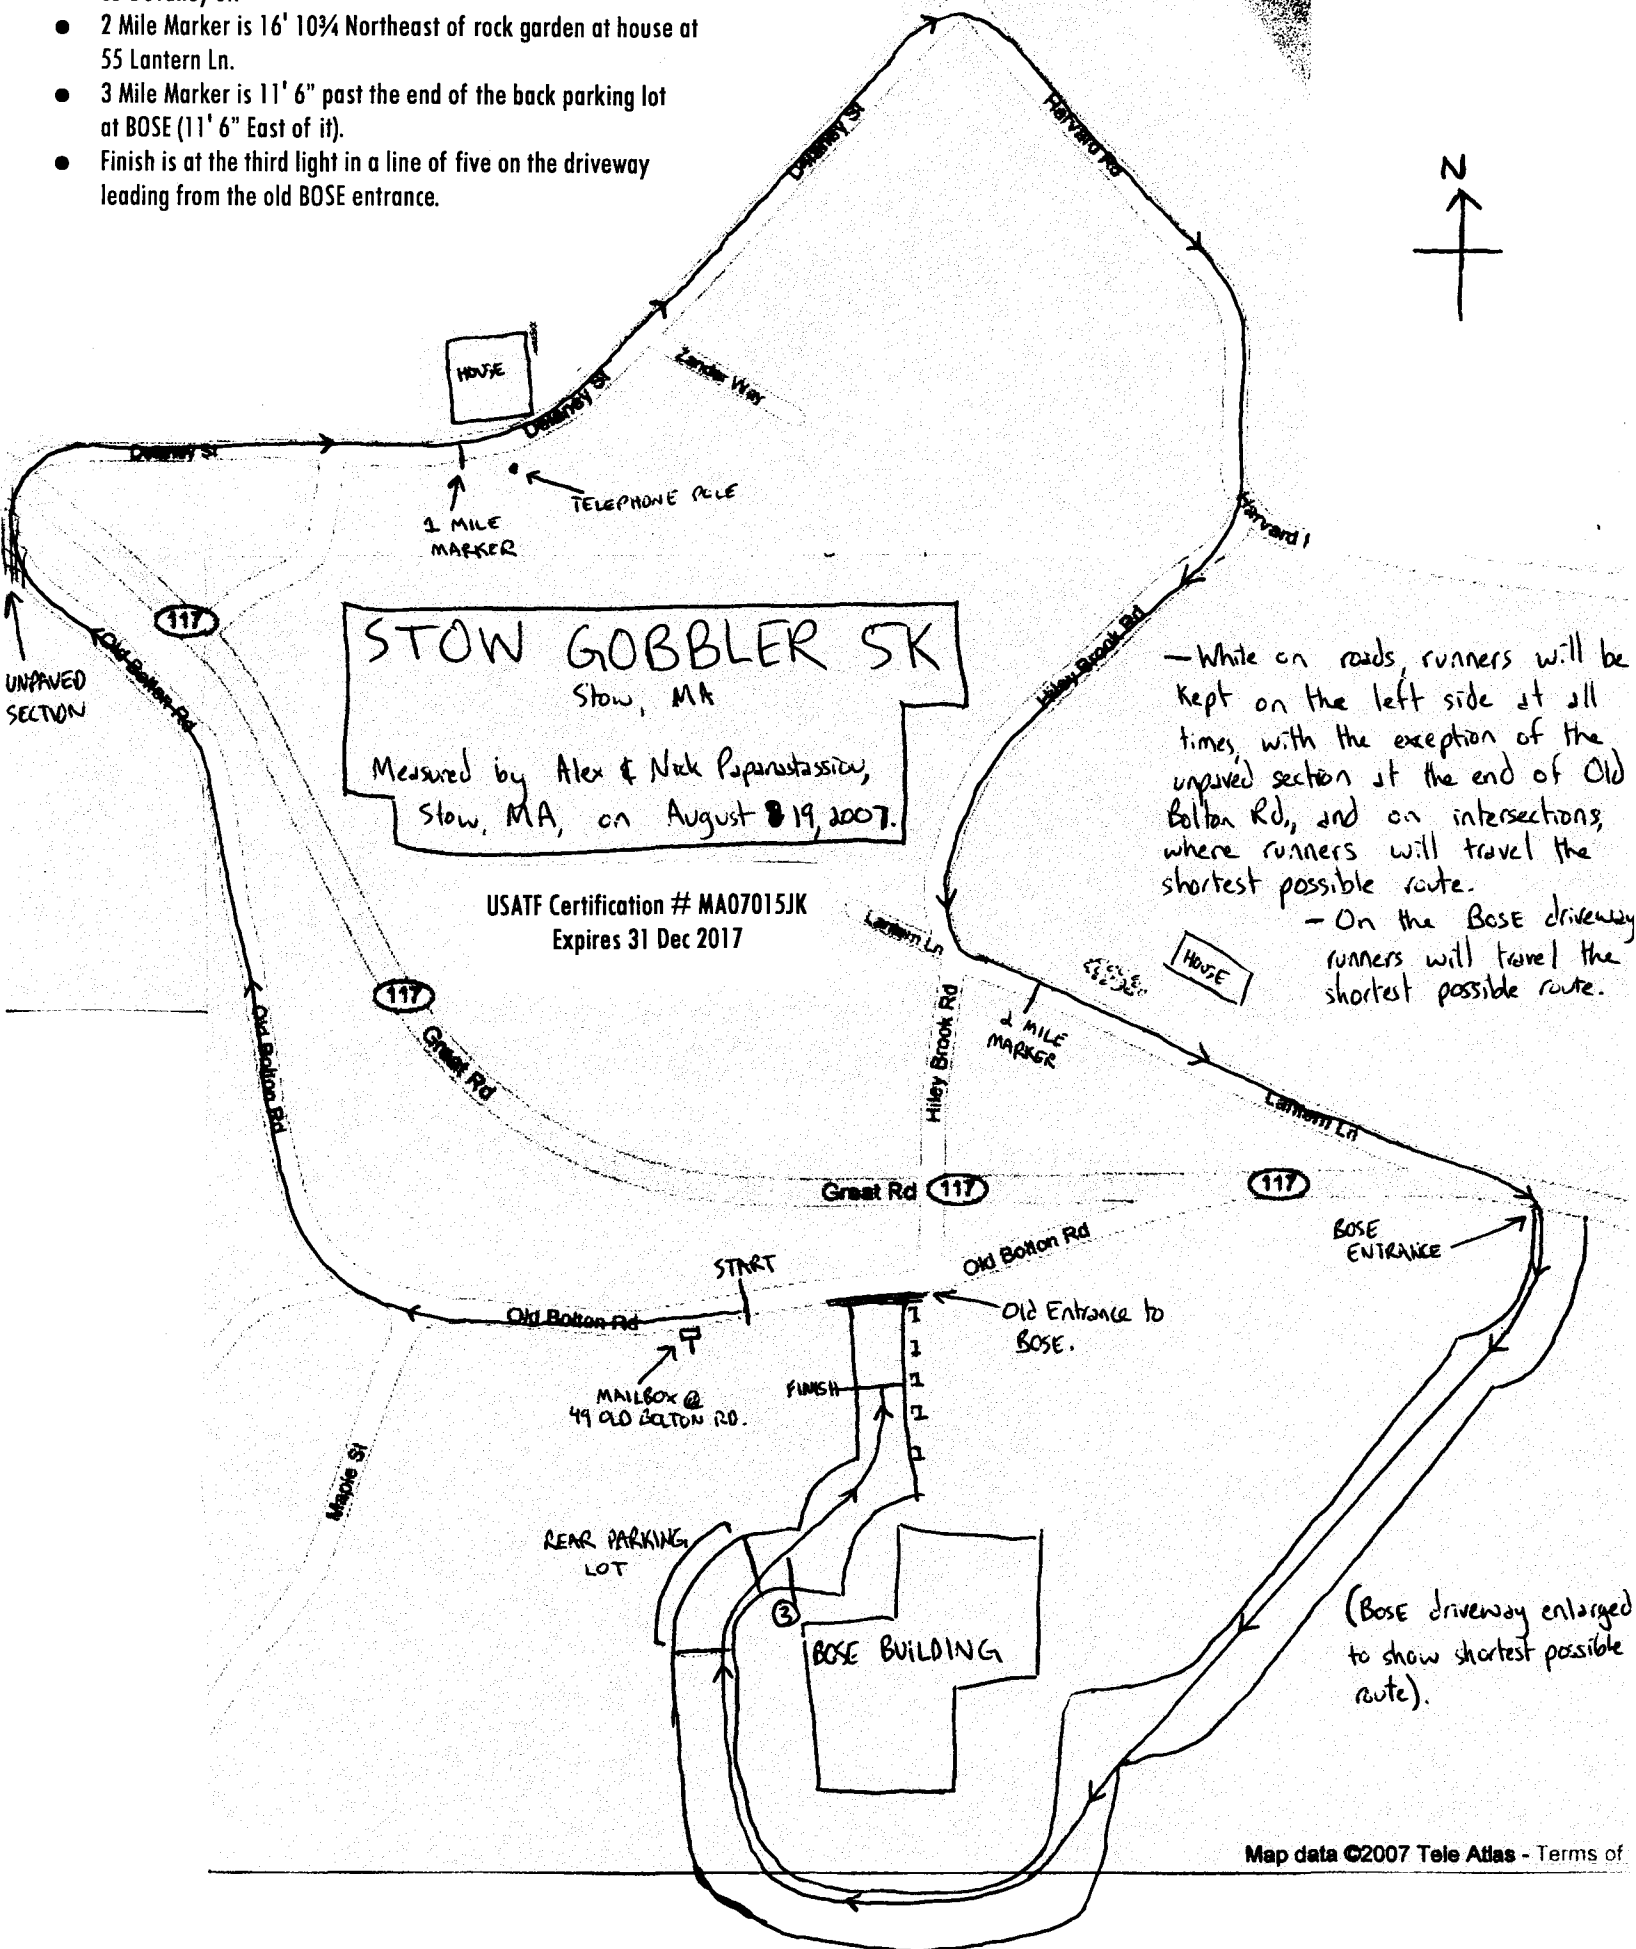 ● 2 Mile Marker is 16' 10¾ Northeast of rock garden at house at
55 Lantern Ln.
● 3 Mile Marker is 11' 6" past the end of the back parking lot
at BOSE (11' 6" East of it).
● Finish is at the third light in a line of five on the driveway
leading from the old BOSE entrance.
N
Delaney St
Harvard Rd
HOUSE
Zander Way
Delaney St
Delaney St
TELEPHONE POLE
1 MILE
MARKER
Harvard
117
UNPAVED
SECTION
Old Bolton Rd
Hiley Brook Rd
STOW GOBBLER 5K
Stow, MA
Measured by Alex & Nick Papanastassiou,
Stow, MA, on August 19, 2007.
USATF Certification # MA07015JK
Expires 31 Dec 2017
- While on roads, runners will be
kept on the left side at all
times, with the exception of the
unpaved section at the end of Old
Bolton Rd., and on intersections,
where runners will travel the
shortest possible route.
- On the BOSE driveway
runners will travel the
shortest possible route.
Lantern Ln
HOUSE
117
Great Rd
Old Bolton Rd
Hiley Brook Rd
2 MILE
MARKER
Lantern Ln
Great Rd 117
117
BOSE
ENTRANCE
START
Old Bolton Rd
Old Bolton Rd
Old Entrance to
BOSE.
MAILBOX @
49 OLD BOLTON RD.
FINISH
Maple St
REAR PARKING
LOT
3
BOSE BUILDING
(BOSE driveway enlarged
to show shortest possible
route).
Map data ©2007 Tele Atlas - Terms of